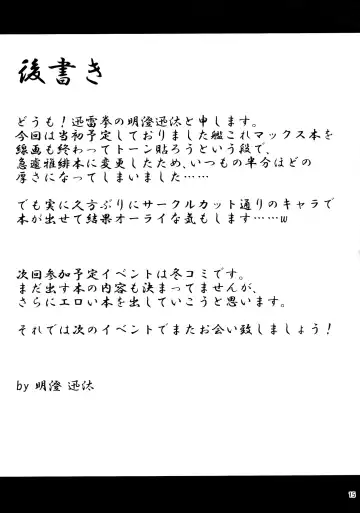 後書き
どうも！迅雷拳の明澄迅汰と申します。
今回は当初予定しておりました艦これマックス本を
線画も終わってトーン貼ろうという段で、
急遽雅緋本に変更したため、いつもの半分ほどの
厚さになってしまいました……
でも実に久方ぶりにサークルカット通りのキャラで
本が出せて結果オーライな気もします……w
次回参加予定イベントは冬コミです。
まだ出す本の内容も決まってませんが、
さらにエロい本を出していこうと思います。
それでは次のイベントでまたお会い致しましょう！
by 明澄 迅汰
15